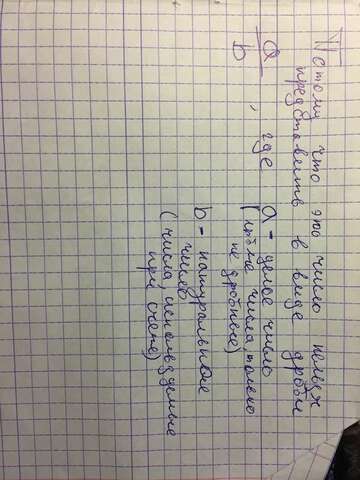 Потому что это число нельзя
представить в виде дроби
a/b, где a - целое число
(любые числа только
не дробные)
b - натуральное
число
(числа, используемые
при счете)